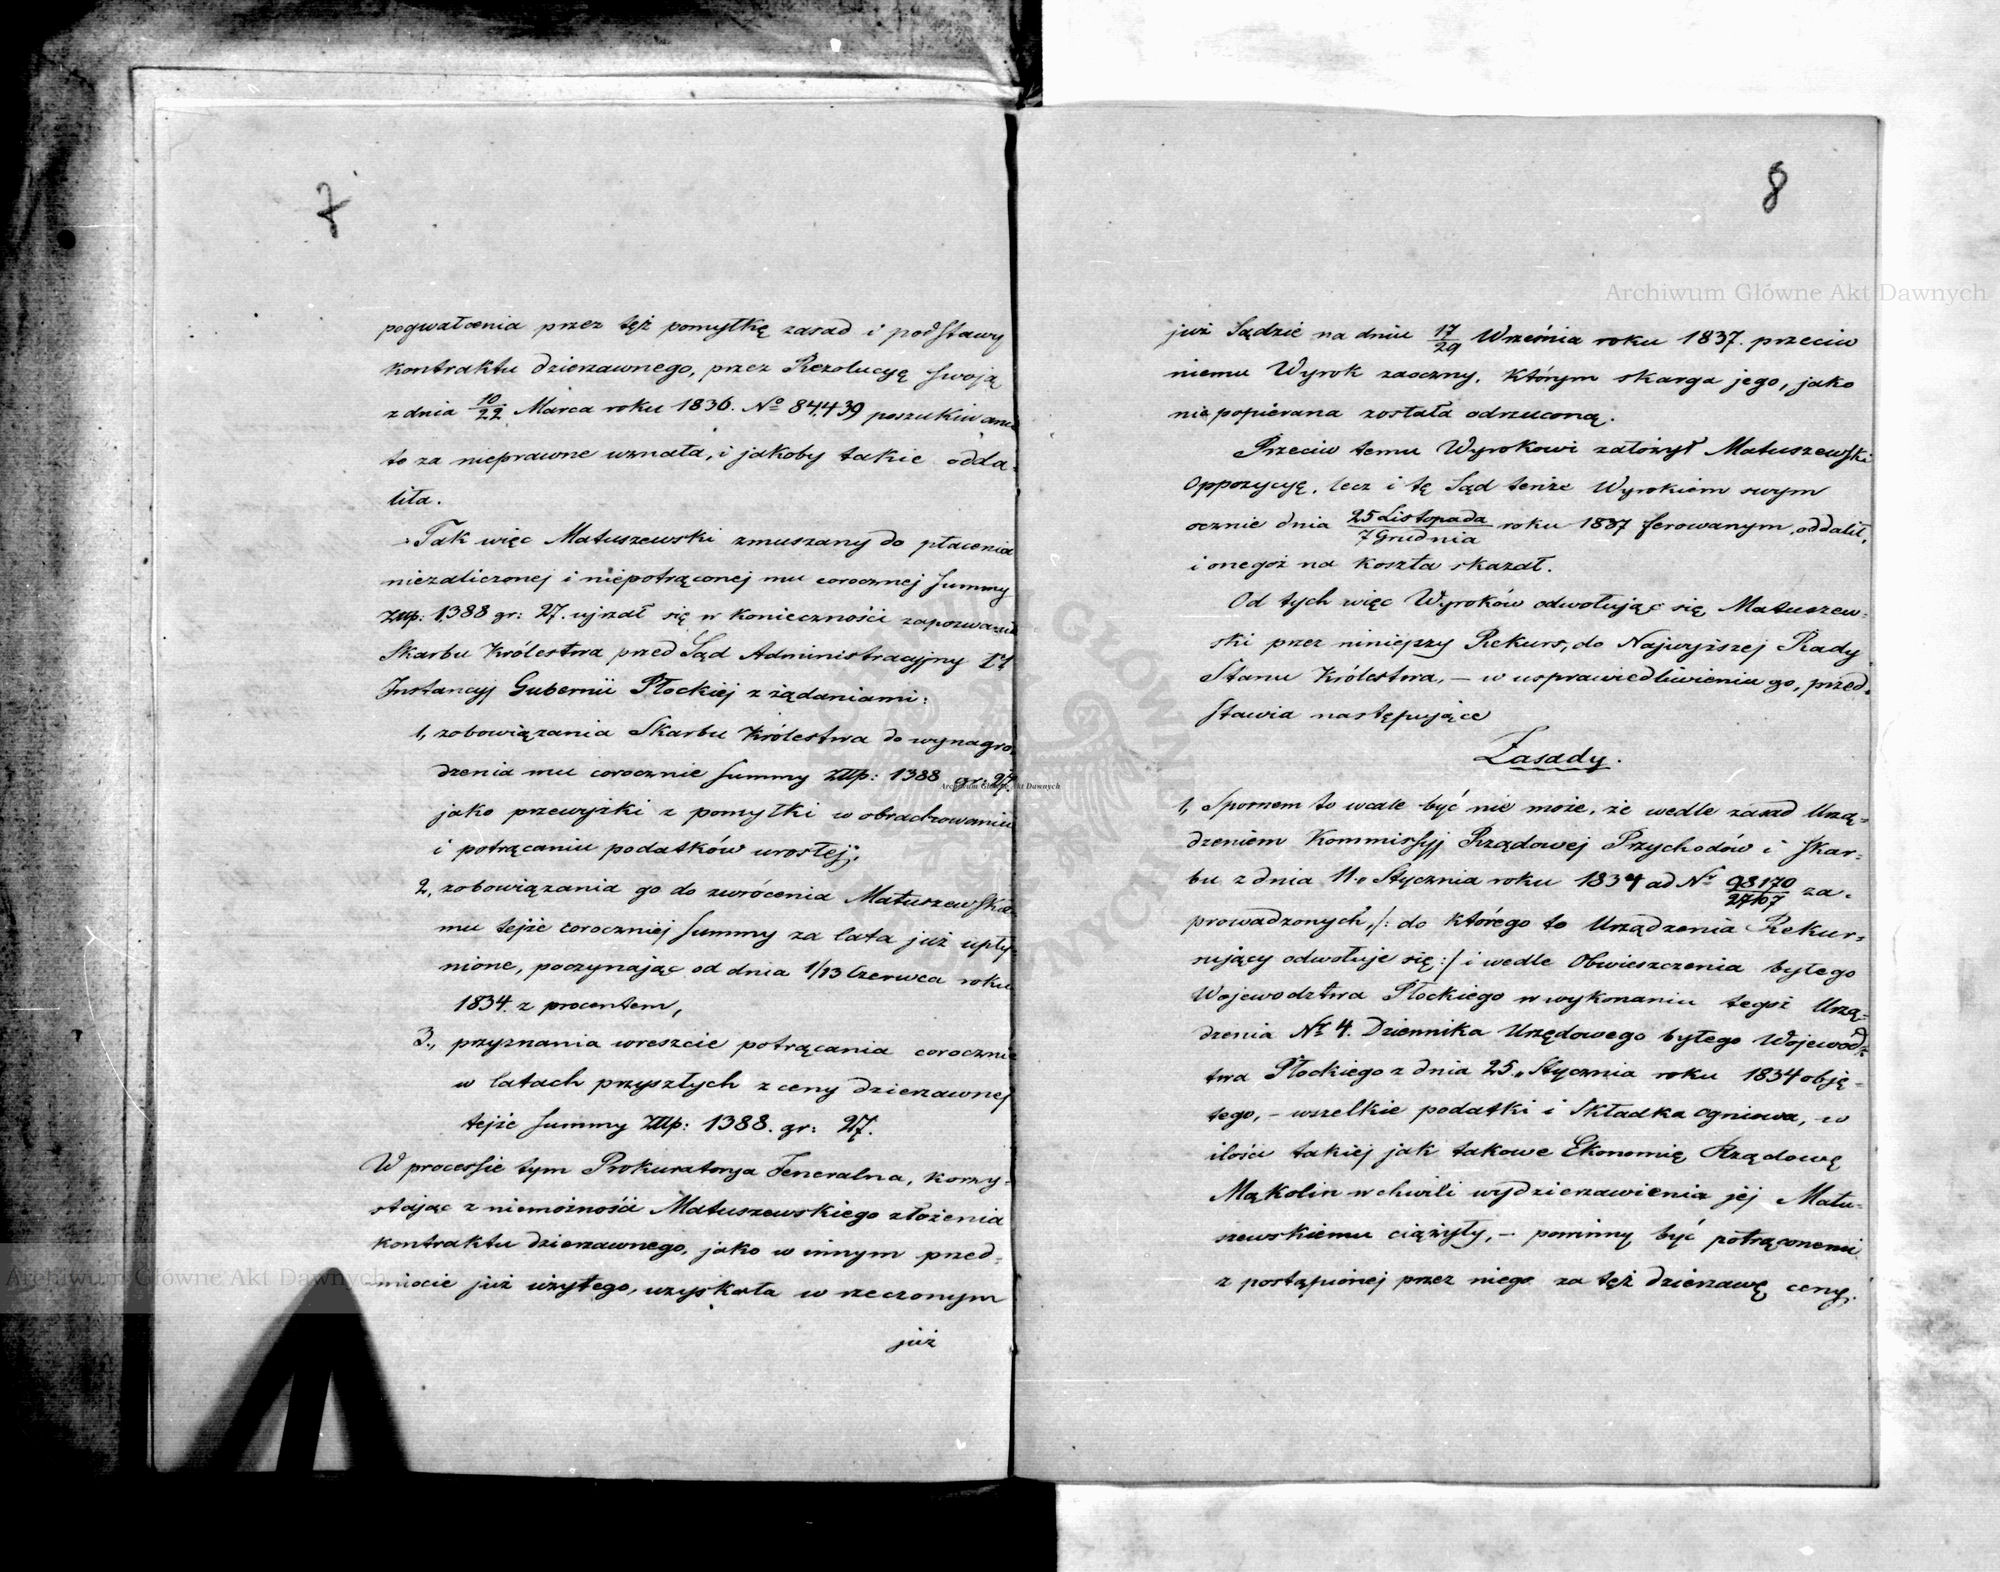 7
pogwałcenia przez tęż pomyłkę zasad i podstawy
kontraktu dzierżawnego, przez Rezolucyę swoją
z dnia 10/22 Marca roku 1836. No 84,439 poszukiwanie
to za nieprawne uznała, i jakoby takie odda-
liła.
Tak więc Matuszewski zmuszany do płacenia
niezaliczonej i niepotrąconej mu corocznej summy
złłp: 1388 gr: 27. ujrzał się w konieczności zapozwania
Skarbu Królestwa przed Sąd Administracyjny
Instancyj Gubernii Płockiej z żądaniami:
1, zobowiązania Skarbu Królestwa do wynagro-
dzenia mu corocznie summy złłp: 1388 gr: 27.
jako przewyżki z pomyłki w obrachowaniu
i potrącaniu podatków urosłej;
2, zobowiązania go do zwrócenia Matuszewskie-
mu tejże coroczniej summy za lata już upły-
nione, poczynając od dnia 1/13 Czerwca roku
1834. z procentem,
3., przyznania wreszcie potrącania corocznie
w latach przyszłych z ceny dzierżawnej
tejże summy złłp: 1388. gr: 27.
W processie tym Prokuratorya Jeneralna, korzy-
stając z niemożności Matuszewskiego złożenia
kontraktu dzierżawnego, jako w innym przed-
miocie już użytego, uzyskała w rzeczonym
już
8
już Sądzie na dniu 17/29 Września roku 1837. przeciw
niemu Wyrok zaoczny, którym skarga jego, jako
niepopierana została odrzuconą.
Przeciw temu Wyrokowi założył Matuszewski
Oppozycyę, lecz i tę Sąd tenże Wyrokiem swym
ocznie dnia 25 Listopada/7 Grudnia roku 1837 ferowanym, oddalił,
i onegoż na koszta skazał.
Od tych więc Wyroków odwołując się Matuszew-
ski przez niniejszy Rekurs, do Najwyższej Rady
Stanu Królestwa, – w usprawiedliwieniu go, przed-
stawia następujące
Zasady.
1, Spornem to wcale być nie może, że wedle zasad Urzą-
dzeniem Kommissyj Rządowej Przychodów i Skar-
bu z dnia 11. Stycznia roku 1834 ad Nr 98170/27107 za-
prowadzonych, /: do którego to Urządzenia Rekur-
rujący odwołuje się :/ i wedle Obwieszczenia byłego
Województwa Płockiego w wykonaniu tegoż Urzą-
dzenia Nr 4. Dziennika Urzędowego byłego Wojewodz-
twa Płockiego z dnia 25. Stycznia roku 1834 obję-
tego, – wszelkie podatki i Składka ogniowa, w
ilości takiej jak takowe Ekonomię Rządową
Mąkolin w chwili wydzierżawienia jej Matu-
szewskiemu ciążyły, – powinny być potrąconemi
z postąpionej przez niego za tęż dzierżawę ceny.
Archiwum Główne Akt Dawnych
Archiwum Główne Akt Dawnych
Archiwum Główne Akt Dawnych